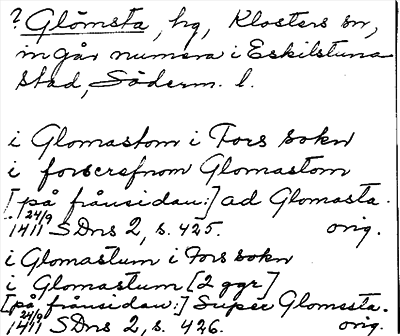 ? Glömsta, hg, Klosters sn,
ingår numera i Eskilstuna
stad, Söderm. l.
i Glomastom i Fors sokn
i forscrefnom Glomastom
[på frånsidan:] ad Glomasta.
24/9 1411 SDns 2, s. 425. orig.
i Glomastum i Fors sokn
i Glomastum [2 ggr]
[på frånsidan:] Super Glomssta.
24/9 1411 SDns 2, s. 426. orig.